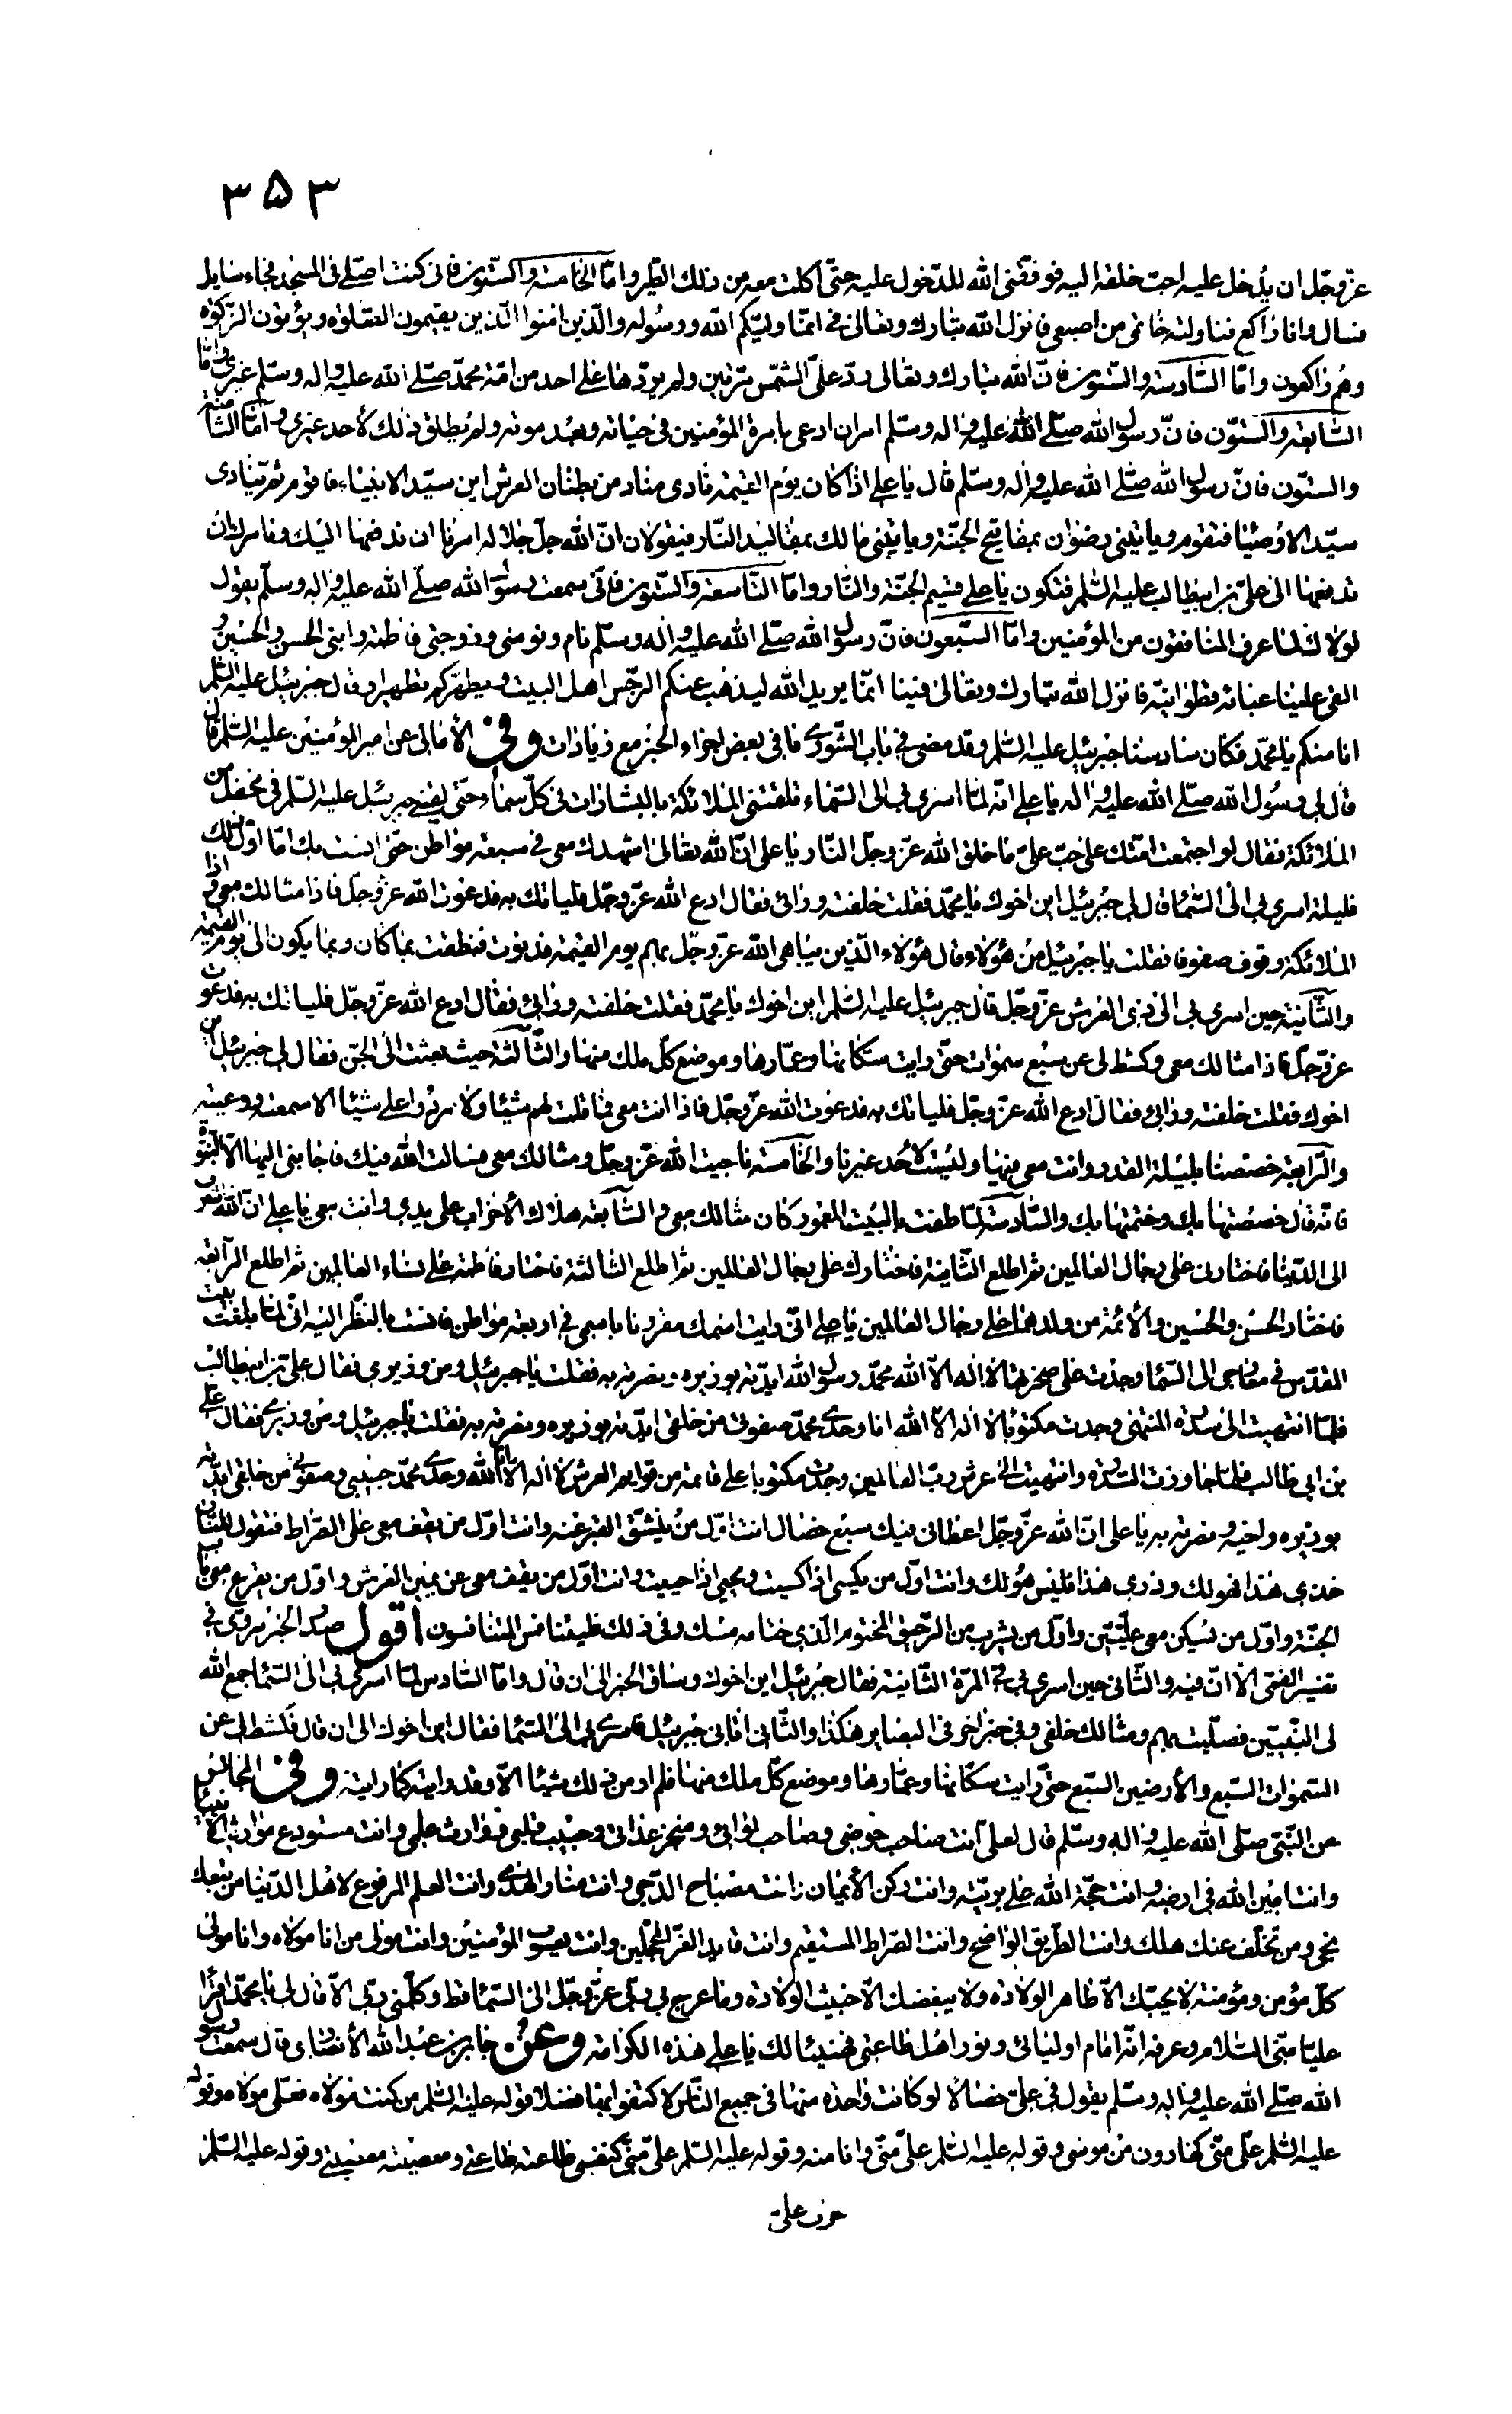 ٣۵٣
عزّ وجلّ ان يُدخل عليه احبّ خلقه اليه فوفقنى الله للدّخول عليه حتّى اكلت معه من ذلك الطّير وامّا الخامسة والستّون فانى كنت اصلّى فى المسجد فجاء سايل
فسال وانا راكع فناولته خاتمى من اصبعى فانزل الله تبارك وتعالى فىّ انمّا وليّكم الله ورسُوله والّذين امنوا الّذين يقيمون الصّلوة ويؤتون الزّكوة
وهُم راكعون وامّا السّادسة والستّون فانّ الله تبارك وتعالى ردّ علىّ الشمّس مرّتين ولم يردّها على احد من امّة محمّد صلّى الله عليه واله وسلّم غيرى وامّا
السّابعة والستّون فانّ رسول الله صلّى الله عليه واله وسلّم امر ان ادعى بامرة المؤمنين فى حياته وبعد موته ولم يُطلق ذلك لأحد غيرى وامّا الثّامنة
والستّون فانّ رسول الله صلّى الله عليه واله وسلّم قال يا على اذا كان يوم القيمة نادى مناد من بطنان العرش اين سيّد الانبياء فاقوم ثمّ ينادى
سيّد الاوُصيَا فتقوم وياتينى رضوان بمفاتيح الجنّة وياتينى مالك بمقاليد النّار فيقولان انّ الله جلّ جلاله امرنا ان ندفعها اليك ونامرك ان
تدفعها الى علىّ بن ابيطالب عليه السّلم فتكون يا على قسيم الجنّة والنّار وامّا التّاسعة والستّون فانّى سمعت رسول الله صلّى الله عليه واله وسلّم يقول
لولاك لما عرف المنافقون من المؤمنين وامّا السّبعون فانّ رسول الله صلّى الله عليه واله وسلّم نام ونومنى وزوجتى فاطمة وابنى الحسن والحسين و
القى علينا عبائة قطوانيّة فانزل الله تبارك وتعالى فينا انمّا يريد الله ليذهب عنكم الرّجس اهل البيت ويطهّركم تطهيرا وقال جبرئيل عليه السّلم
انا منكم يا محمّد فكان سادسنا جبرئيل عليه السّلم وقد مضى فى باب الشّورى ما فى بعض اجزاء الخبر مع زيادات وفى الأمالى عن امير المؤمنين عليه السّلم قال
قال لى رسُول الله صلّى الله عليه واله يا على انّه لمّا اسرى بى الى السّماء تلقتنى الملائكة بالبشارات فى كلّ سماء حتّى لقينى جبرئيل عليه السّلم فى محفل من
الملائكة فقال لو اجتمعت امّتك على حبّ علىّ ما خلق الله عزّ وجلّ النّار يا على انّ الله تعالى اشهدك معى فى سبعة مواطن حتّى انست بك امّا اوّل ذلك
فليلة اسرى بى الى السّمآ قال لى جبُرئيل اين اخوك يا محمّد فقلت خلفته ورائى فقال ادع الله عزّ وجلّ فلياتك به فدعوت الله عزّ وجلّ فاذا مثالك معى واذا
الملائكة وقوف صفوفا فقلت يا جبرئيل منُ هؤلاء قال هؤلاء الّذين يباهى الله عزّ وجلّ بهم يوم القيمة فدنوت فنطقت بما كان وبما يكون الى يوم القيمة
والثّانية حين اسرى بى الى ذى العرش عزّ وجلّ قال جبرئيل عليه السّلم اين اخوك يا محمّد فقلت خلفته ورائى فقال ادع الله عزّ وجلّ فلياتك به فدعوت
عزّ وجلّ فاذا مثالك معى وكشط لى عن سبُع سموات حتّى رايت سكّانها وعمّارها وموضع كلّ ملك منها والثّالثة حيث بعثت الى الجنّ فقال لى جبرئيل اين
اخوك فقلت خلفته ورائى فقال ادع الله عزّ وجلّ فلياتك به فدعوت الله عزّ وجلّ فاذا انت معى فما قلت لهم شيئا ولا ردّوا على شيئا الا سمعته ووعيته
والرّابعة خصّصنا بليلة القدر وانت معى فيها وليُست لأحد غيرنا والخامسة ناجيت الله عزّ وجلّ ومثالك معى فسالت الله فيك فاجابنى اليها الّا النبّوة
فانّه قال خصصتها بك وختمتها بك والسّادسة لمّا طفت بالبيُت المعمور كان مثالك معى والسّابعة هلاك الأحزاب على يدى وانت معى يا على انّ الله اشرف
الى الدّنيا فاختارنى على رجال العالمين ثمّ اطلع الثّانية فاختارك على رجال العالمين ثمّ اطلع الثالثة فاختار فاطمة على نساء العالمين ثمّ اطلع الرّابعة
فاختار الحسن والحسين والأئمّة من ولدهما على رجال العالمين يا على انّى رايت اسمك مقرونا باسمى فى اربعة مواطن فانست بالنّظر اليه انّى لما بلغت بيت
المقدّس فى معراجى الى السّمآ وجدت على صخرتها لا اله الّا الله محمّد رسول الله ايدّته بوزيره ونصرته به فقلت يا جبرئيل ومن وزيرى فقال علىّ بن ابيطالب
فلمّا انتهيت الى سدرة المنتهى وجدت مكتوبا لا اله الّا الله انا وحدى محمّد صفوتى من خلقى ايّدته بوزيره ونصرته به فقلت يا جبرئيل ومن وزيرى فقال على
بن ابى طالب فلمّا جاوزت السّدرة وانتهيت الى عرش ربّ العالمين وجدت مكتوبا على قائمة من قوايم العرش لا اله الّا انا الله وحدى محمّد حبيبى وصفوتى من خلقى ايّدته
بوزيره واخيه ونصرته به يا على انّ الله عزّ وجلّ اعطانى فيك سبع خصال انت اوّل منُ ينشقّ القبر عنه وانت اوّل من يقف معى على الصّراط فتقول للنّار
خذى هذا فهو لك وذرى هذا فليس هُو لك وانت اوّل من يكسى اذا كسيت ويحيى اذا حييت وانت اوّل من يقف معى عن يمين العرش واوّل من يقرع معى باب
الجنّة واوّل من يسكن معى عليّين واوّل من يشرب من الرّحيق المختوم الّذى ختامه مسك وفى ذلك فليتنافس المتنافسون اقول صدر الخبر مروىّ فى
تفسير القمّى الّا انّ فيه والثّانى حين اسرى بى فى المرّة الثّانية فقال جبُرئيل اين اخوك وساق الخبر الى ان قال وامّا السّادس لمّا اسرى بى الى السّمآ جمع الله
لى النّبيّين فصلّيت بهم ومثالك خلفى وفى خبر اخر فى البصاير هكذا والثّانى اتانى جبرئيل فاسرى بى الى السّمآ فقال اين اخوك الى ان قال فكشط لى عن
السّموات السّبع والأرضين السّبع حتّى رايت سكّانها وعمّارها وموضع كلّ ملك منها فلم ار من ذلك شيئا الّا وقد رايته كما رايته وفى المجالس
عن النّبىّ صلّى الله عليه واله وسلّم قال لعلىّ انت صاحب حوضى وصاحب لوائى ومنجز عداتى وحبيب قلبى ووارث علمى وانت مستودع مواريث الأنبيا
وانت امين الله فى ارضه وانت حجّة الله على بريّته وانت ركن الأيمان وانت مصباح الدّجى وانت منار الهدى وانت العلم المرفوع لأهل الدّنيا من تبعك
نجى ومن تخلّف عنك هلك وانت الطّريق الواضح وانت الصّراط المستقيم وانت قايد الغرّ المحجّلين وانت يعسوب المؤمنين وانت مولى من انا مولاه وانا مولى
كلّ مؤمن ومؤمنة لا يحبّك الّا طاهر الولادة ولا يبغضك الّا خبيث الولادة وما عرج بى ربّى عزّ وجلّ الى السّمآ قط وكلّمنى ربّى الّا قال لى يا محمّد اقرا
عليّا منّى السّلام وعرفه انّه امام اوليائى ونور اهل طاعتى فهنيئا لك يا على هذه الكرامة وعن جابر بن عبد الله الأنصارى قال سمعت رسول
الله صلّى الله عليه واله وسلّم يقول فى علىّ خصالا لو كانت واحدة منها فى جميع النّاس لاكتفوا بها فضلا قوله عليه السّلم من كنت مولاه فعلى مولاه وقوله
عليه السّلم علىّ منّى كهارون منُ موسى وقوله عليه السّلم علىّ منّى وانا منه وقوله عليه السّلم علىّ منّى كنفسى طاعته طاعتى ومعصيته معصيتى وقوله عليه السّلم
حرب علىّ